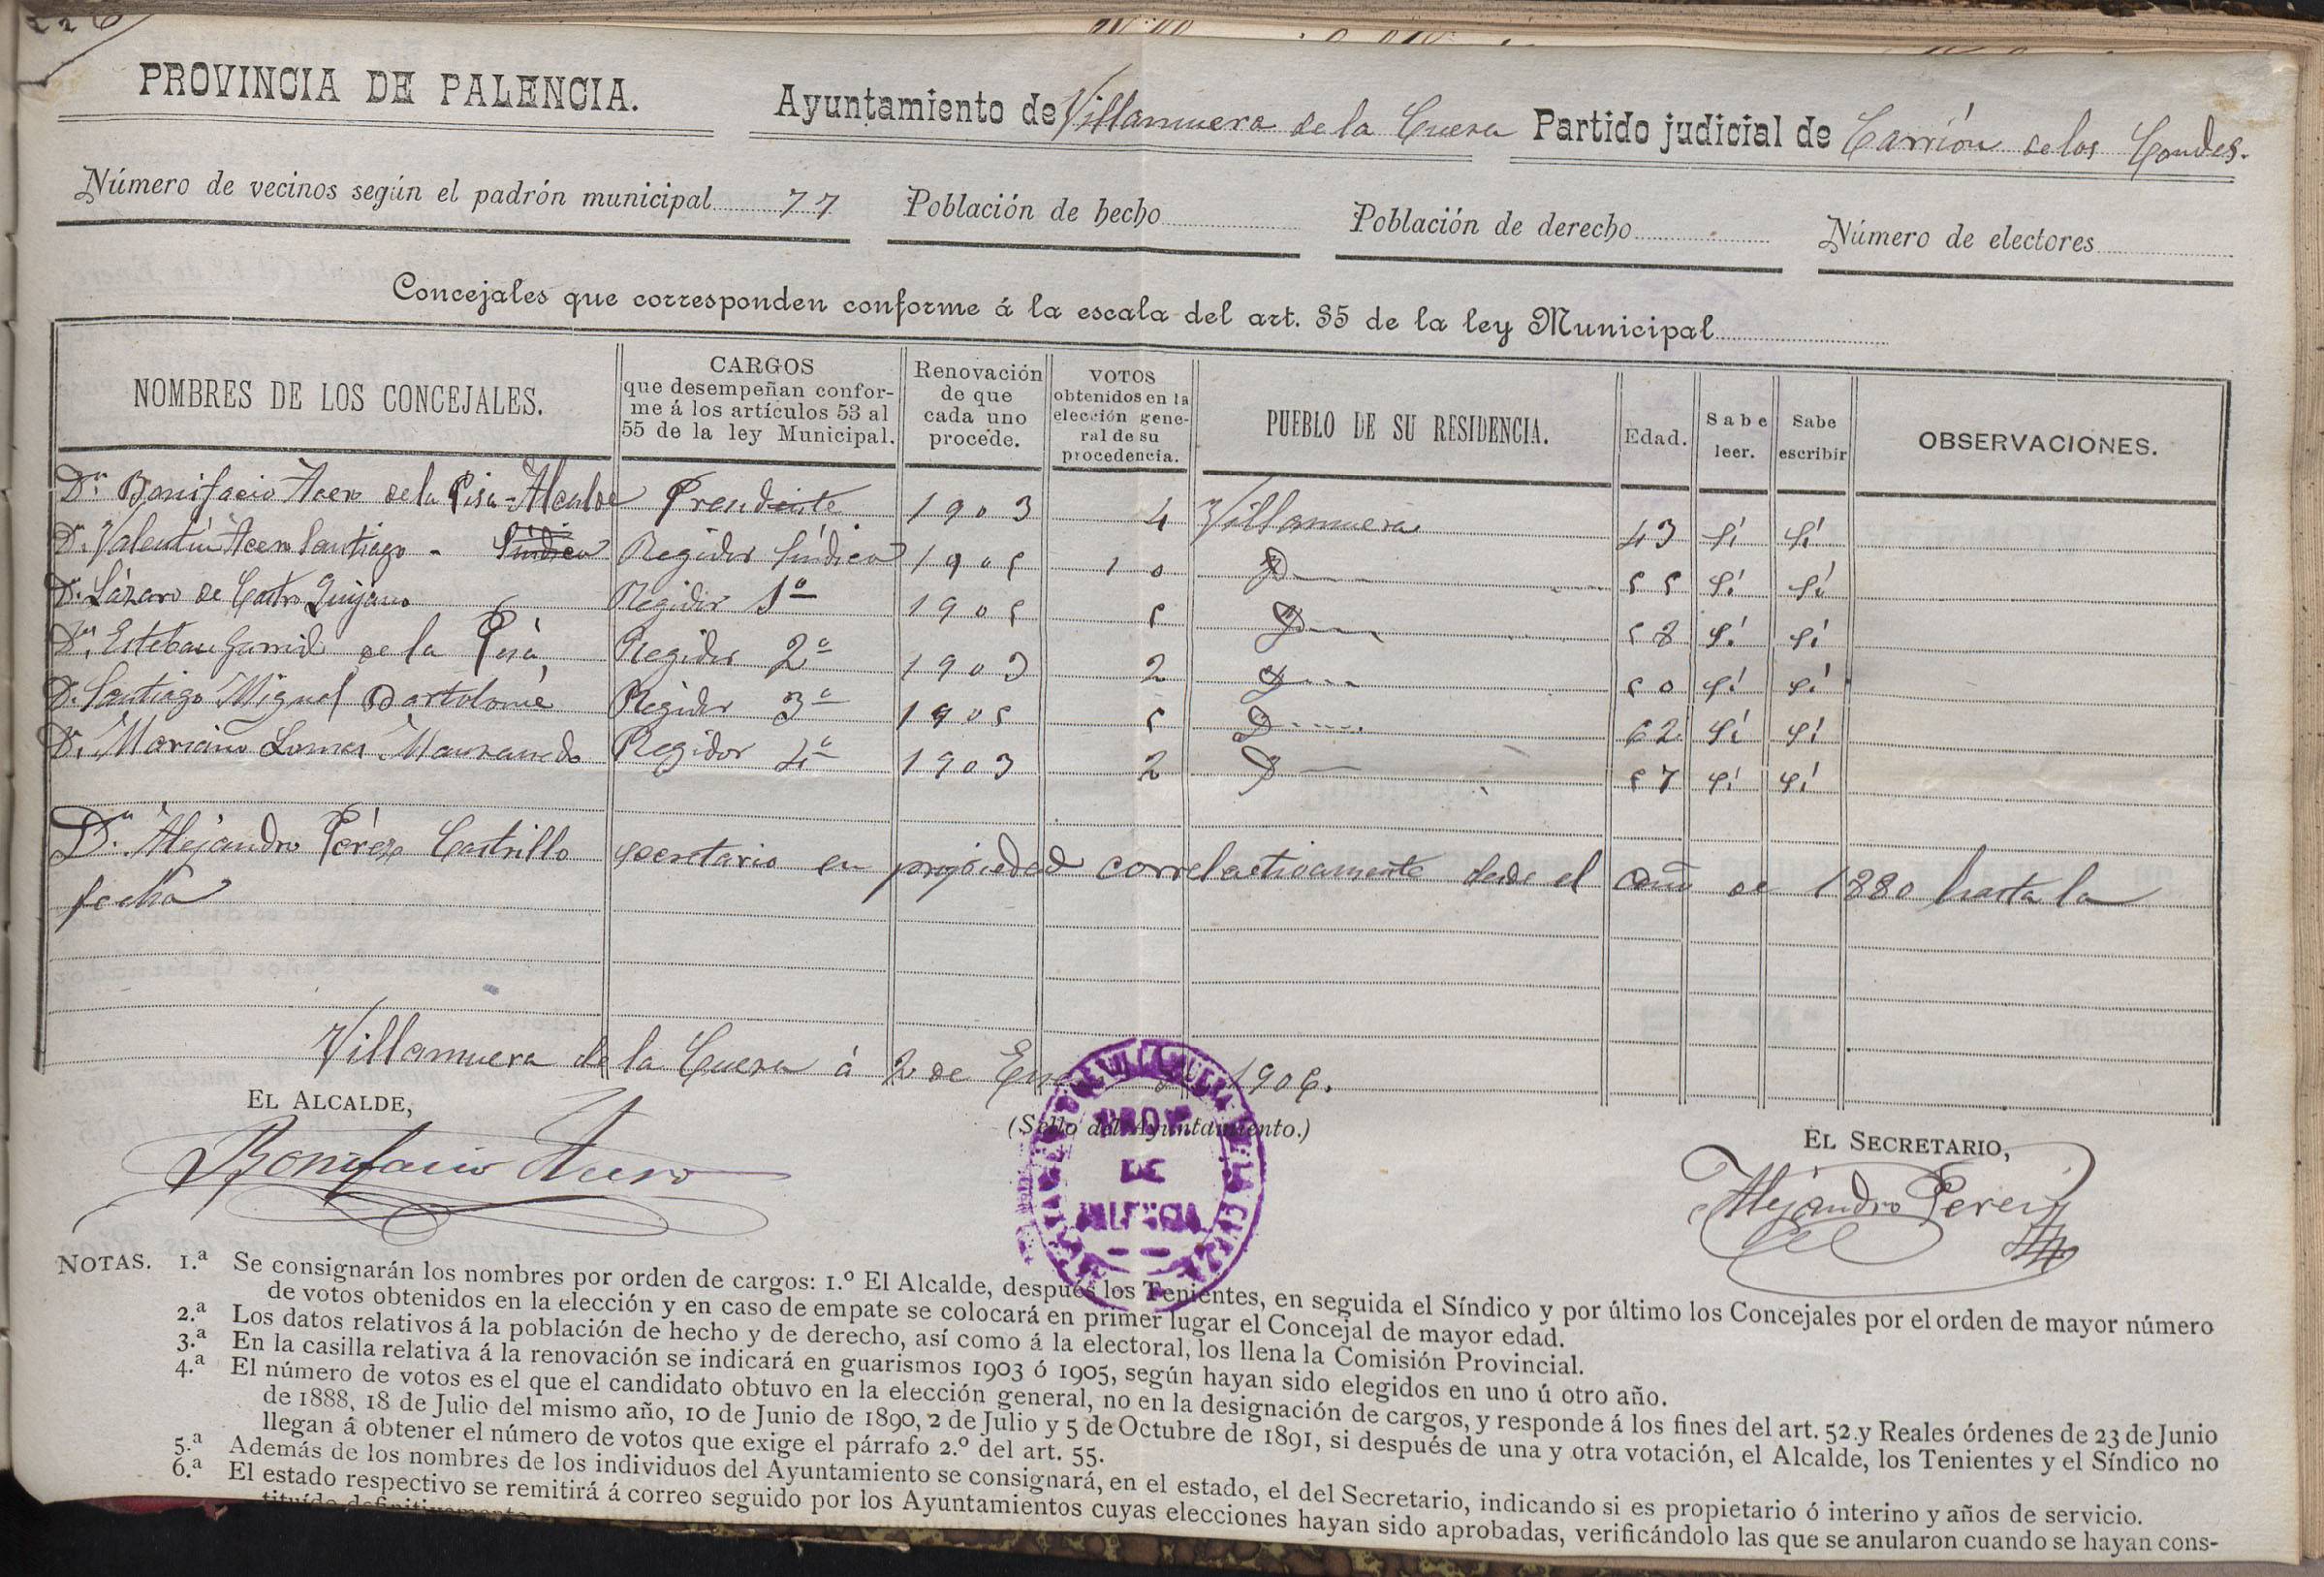 226
PROVINCIA DE PALENCIA.
Ayuntamiento de Villamuera de la Cueza Partido judicial de Carrión de los Condes.
Número de vecinos según el padrón municipal 77 Población de hecho Población de derecho Número de electores
Concejales que corresponden conforme á la escala del art. 35 de la ley Municipal
NOMBRES DE LOS CONCEJALES.
CARGOS
que desempeñan confor-
me á los artículos 53 al
55 de la ley Municipal.
Renovación
de que
cada uno
procede.
VOTOS
obtenidos en la
elección gene-
ral de su
procedencia.
PUEBLO DE SU RESIDENCIA.
Edad.
Sabe
leer.
Sabe
escribir
OBSERVACIONES.
Dn. Bonifacio Acero de la Pisa - Alcalde Presidente 1903 4 Villamuera 43 Sí Sí
D. Valentín Acero Santiago - Síndico Regidor Síndico 1905 10 D 55 Sí Sí
D. Lázaro de Castro Quijano Regidor 1º 1905 5 D 58 Sí Sí
Dn. Esteban Garrido de la Pisa Regidor 2º 1903 2 D 50 Sí Sí
D. Santiago Miguel Bartolomé Regidor 3º 1905 5 D 62 Sí Sí
Dn. Mariano Lomas Manzanedo Regidor 4º 1903 2 D 57 Sí Sí
Dn. Alejandro Pérez Castrillo secretario en propiedad correlactivamente desde el año de 1880 hasta la
fecha
Villamuera de la Cueza á 2 de Enero de 1906.
EL ALCALDE,
(Sello del Ayuntamiento.)
EL SECRETARIO,
Bonifacio Acero
PROV.
DE
PALENCIA
Alejandro Perez
NOTAS. 1.ª Se consignarán los nombres por orden de cargos: 1.º El Alcalde, después los Tenientes, en seguida el Síndico y por último los Concejales por el orden de mayor número
de votos obtenidos en la elección y en caso de empate se colocará en primer lugar el Concejal de mayor edad.
2.ª Los datos relativos á la población de hecho y de derecho, así como á la electoral, los llena la Comisión Provincial.
3.ª En la casilla relativa á la renovación se indicará en guarismos 1903 ó 1905, según hayan sido elegidos en uno ú otro año.
4.ª El número de votos es el que el candidato obtuvo en la elección general, no en la designación de cargos, y responde á los fines del art. 52 y Reales órdenes de 23 de Junio
de 1888, 18 de Julio del mismo año, 10 de Junio de 1890, 2 de Julio y 5 de Octubre de 1891, si después de una y otra votación, el Alcalde, los Tenientes y el Síndico no
llegan á obtener el número de votos que exige el párrafo 2.º del art. 55.
5.ª Además de los nombres de los individuos del Ayuntamiento se consignará, en el estado, el del Secretario, indicando si es propietario ó interino y años de servicio.
6.ª El estado respectivo se remitirá á correo seguido por los Ayuntamientos cuyas elecciones hayan sido aprobadas, verificándolo las que se anularon cuando se hayan cons-
tituído definitivamente.